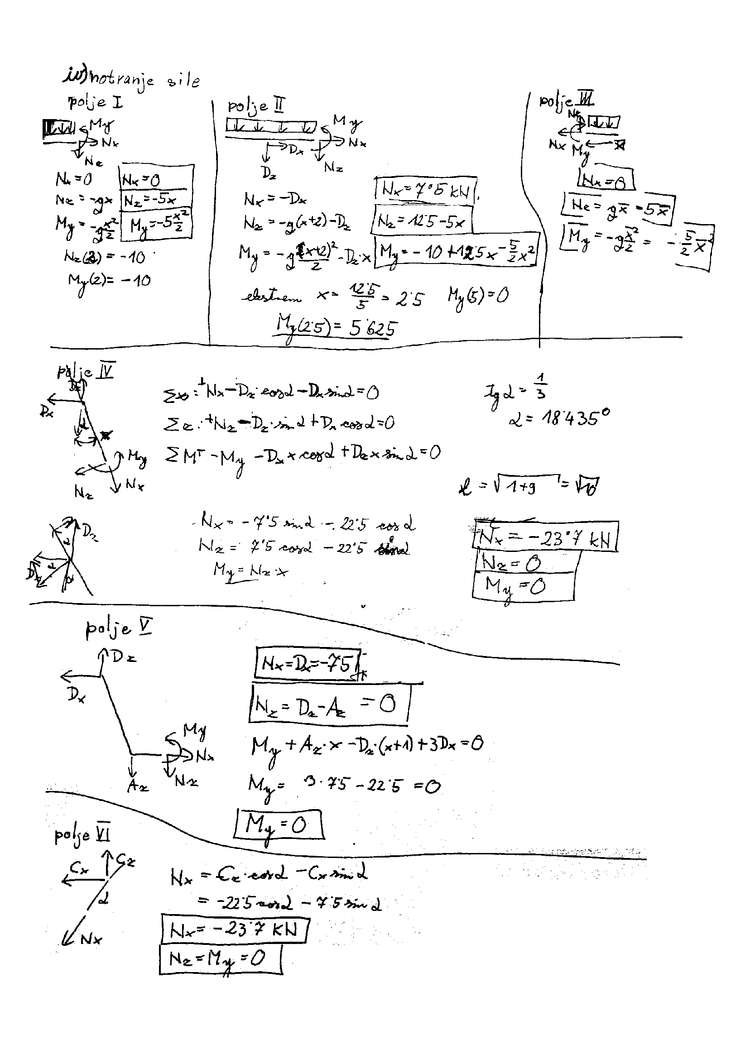 iv) notranje sile
polje I
My
Nx
Nz
Nx = 0
Nz = -gx
My = -g x²/2
Nz(2) = -10
My(2) = -10
Nx = 0
Nz = -5x
My = -5 x²/2
polje II
My
Nx
Dx
Nz
Dz
Nx = -Dx
Nz = -g(x+2) - Dz
My = -g (x+2)²/2 - Dz·x
Nx = 7'5 kN
Nz = 12'5 - 5x
My = -10 + 12'5x - 5/2 x²
ekstrem x = 12'5/5 = 2'5 My(5) = 0
My(2'5) = 5'625
polje III
Nz
Nx
My
x̄
Nx = 0
Nz = gx̄ = 5x̄
My = -g x̄²/2 = -5/2 x̄²
polje IV
Dz
Dx
α
x
My
Nz
Nx
Σx: +Nx - Dz·cosα - Dx sinα = 0
Σz: +Nz - Dz·sinα + Dx cosα = 0
ΣM: -My - Dx x cosα + Dz x sinα = 0
tgα = 1/3
α = 18'435°
l = √1+9 = √10
Dz
Nx = -7'5 sinα - 22'5 cosα
Nz = 7'5 cosα - 22'5 sinα
My = Nz·x
Nx = -23'7 kN
Nz = 0
My = 0
polje V
Dz
Dx
My
Nx
Az
Nz
Nx = Dx = -7'5
Nz = Dz - Az = 0
My + Az·x - Dz·(x+1) + 3Dx = 0
My = 3·7'5 - 22'5 = 0
My = 0
polje VI
Cx
Cz
α
Nx
Nx = -Cz·cosα - Cx sinα
= -22'5 cosα - 7'5 sinα
Nx = -23'7 kN
Nz = My = 0